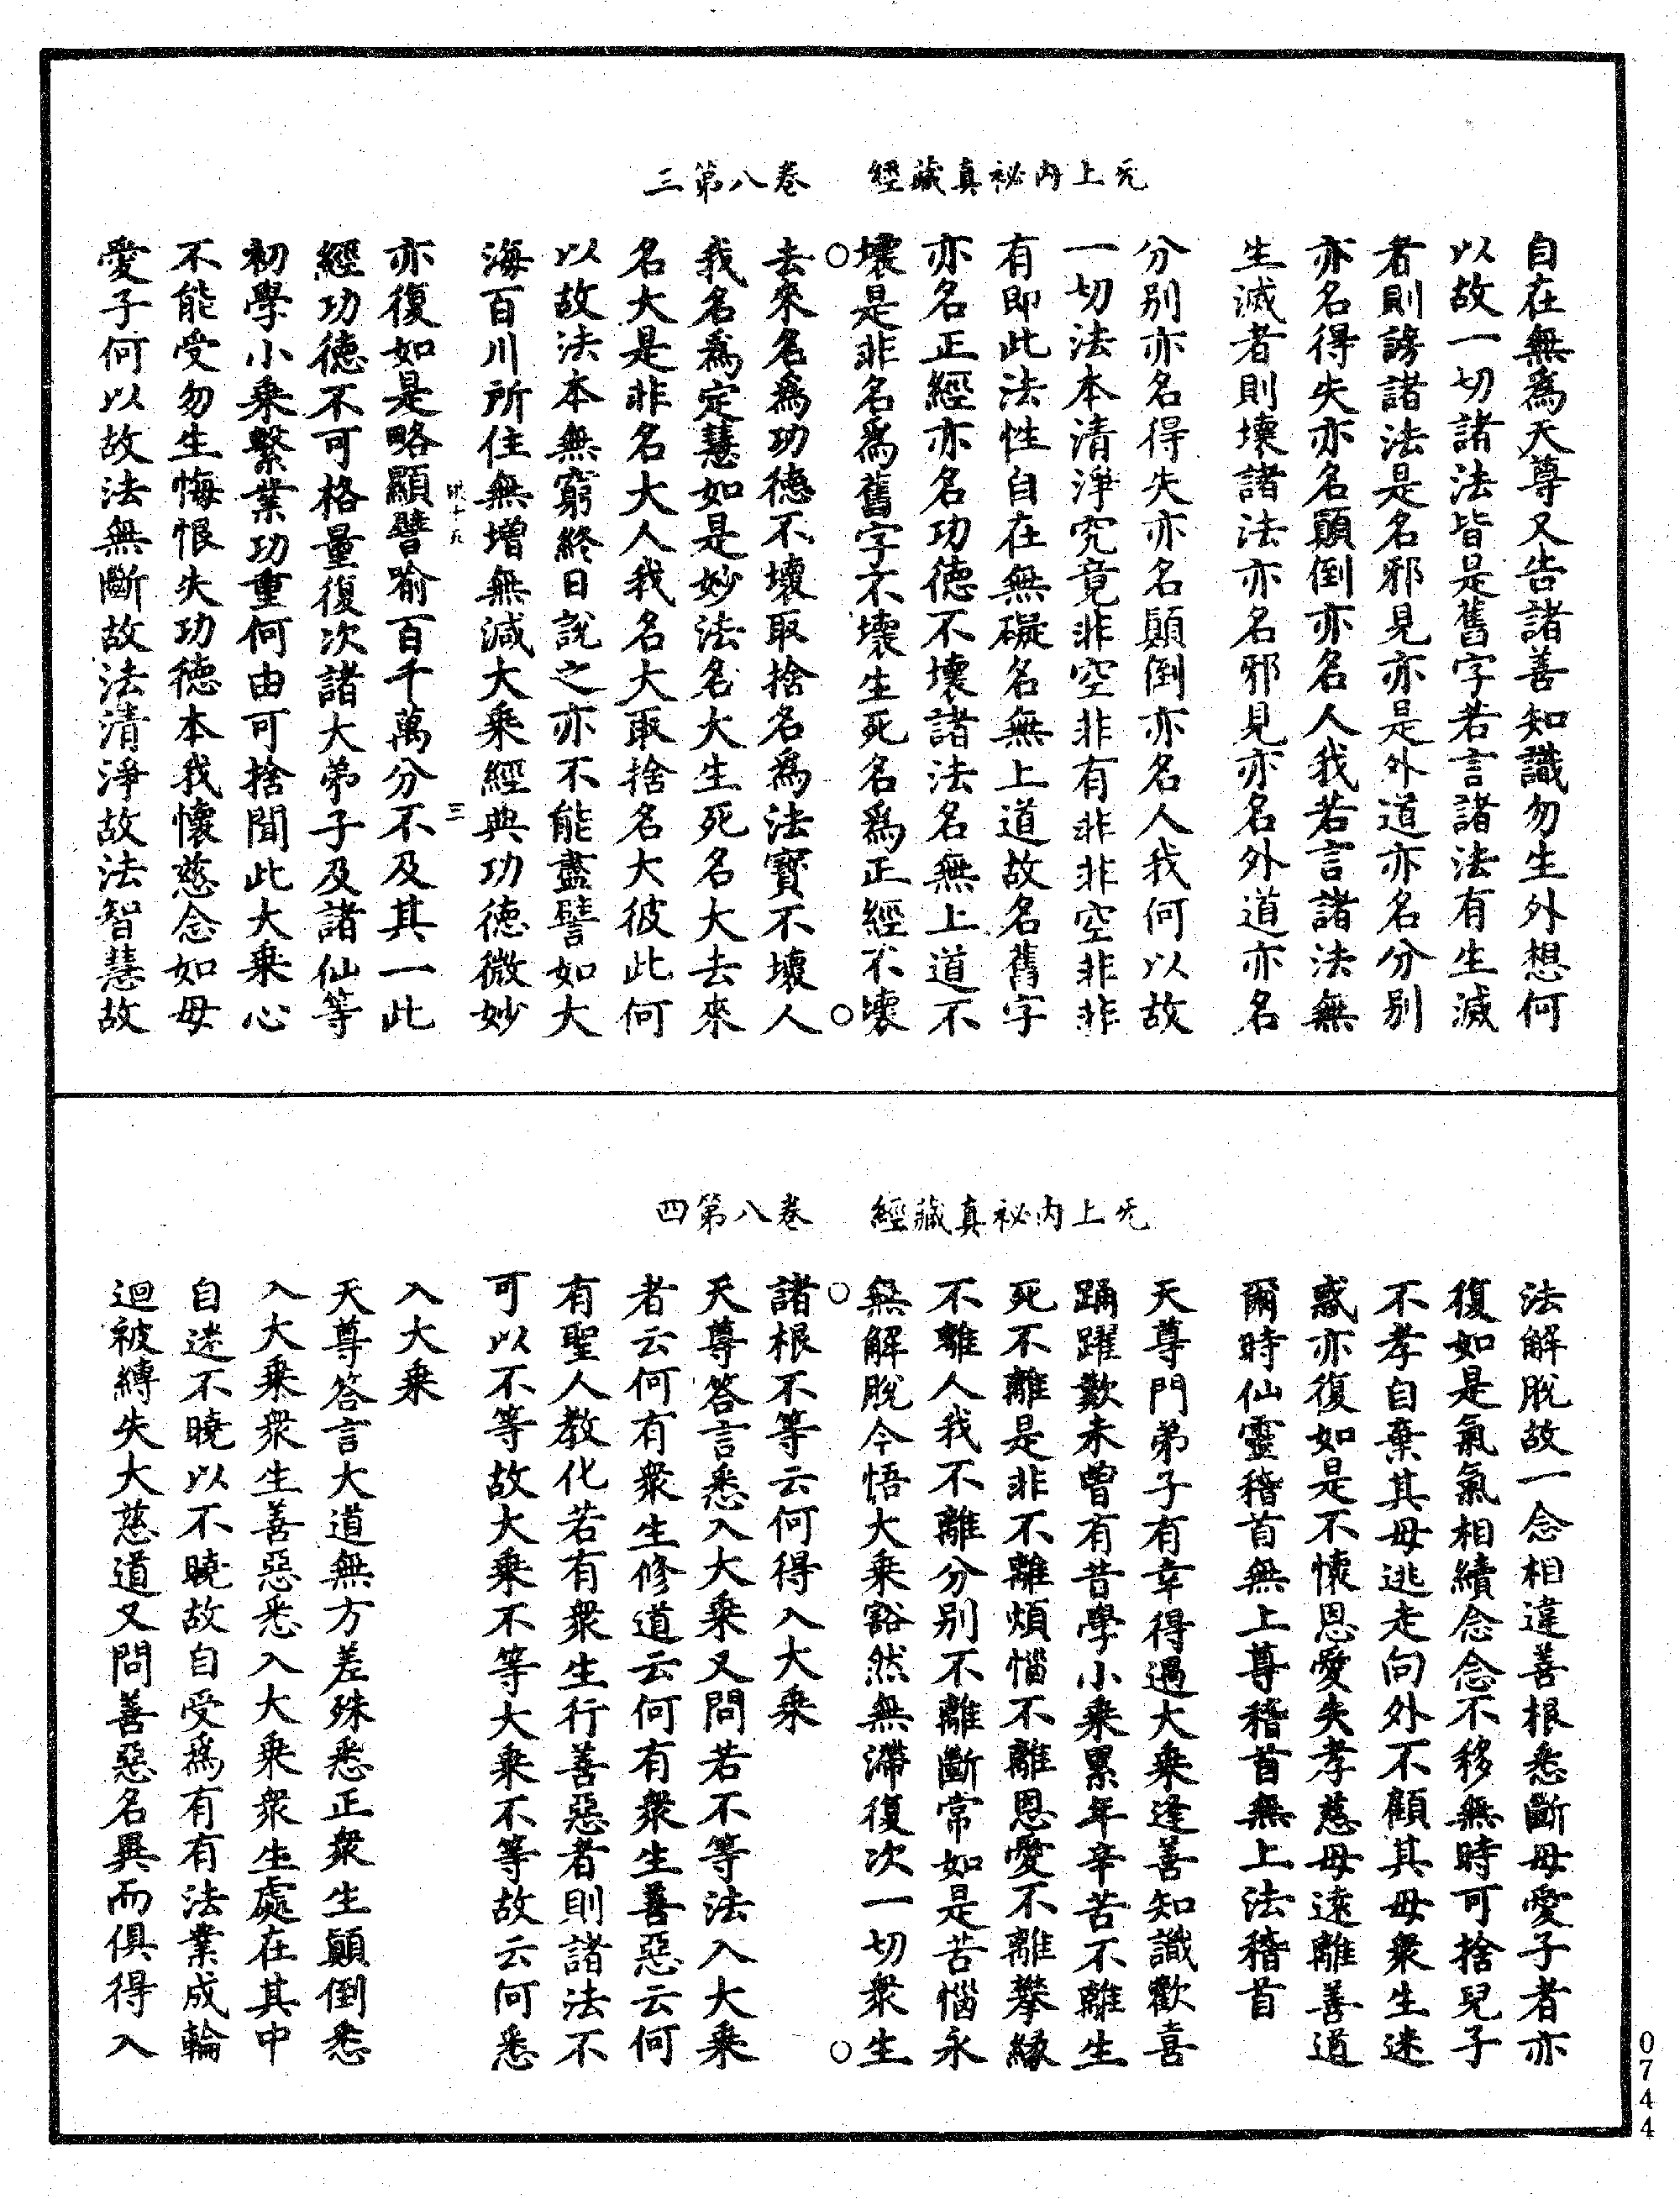 无上内祕真藏經　卷八第三
自在無爲天尊又告諸善知識勿生外想何
以故一切諸法皆是舊字若言諸法有生滅
者則謗諸法是名邪見亦是外道亦名分別
亦名得失亦名顚倒亦名人我若言諸法無
生滅者則壞諸法亦名邪見亦名外道亦名
分別亦名得失亦名顚倒亦名人我何以故
一切法本清淨究竟非空非有非非空非非
有即此法性自在無礙名無上道故名舊字
亦名正經亦名功德不壞諸法名無上道不
壞是非名爲舊字不壞生死名爲正經不壞
去來名爲功德不壞取捨名爲法寶不壞人
我名爲定慧如是妙法名大生死名大去來
名大是非名大人我名大取捨名大彼此何
以故法本無窮終日說之亦不能盡譬如大
海百川所住無增無減大乘經典功德微妙
三
亦復如是略顯譬喻百千萬分不及其一此
經功德不可格量復次諸大弟子及諸仙等
初學小乘繫業功重何由可捨聞此大乘心
不能受勿生悔恨失功德本我懷慈念如母
愛子何以故法無斷故法清淨故法智慧故
无上内祕真藏經　卷八第四
法解脫故一念相違善根悉斷母愛子者亦
復如是氣氣相續念念不移無時可捨兒子
不孝自棄其母逃走向外不顧其母衆生迷
惑亦復如是不懷恩愛失孝慈母遠離善道
爾時仙靈稽首無上尊稽首無上法稽首
天尊門弟子有幸得遇大乘逢善知識歡喜
踊躍歎未曾有昔學小乘累年辛苦不離生
死不離是非不離煩惱不離恩愛不離攀緣
不離人我不離分別不離斷常如是苦惱永
無解脫今悟大乘豁然無滯復次一切衆生
諸根不等云何得入大乘
天尊答言悉入大乘又問若不等法入大乘
者云何有衆生修道云何有衆生善惡云何
有聖人教化若有衆生行善惡者則諸法不
可以不等故大乘不等大乘不等故云何悉
入大乘
天尊答言大道無方差殊悉正衆生顚倒悉
入大乘衆生善惡悉入大乘衆生處在其中
自迷不曉以不曉故自受爲有有法業成輪
迴被縛失大慈道又問善惡名異而俱得入
0744